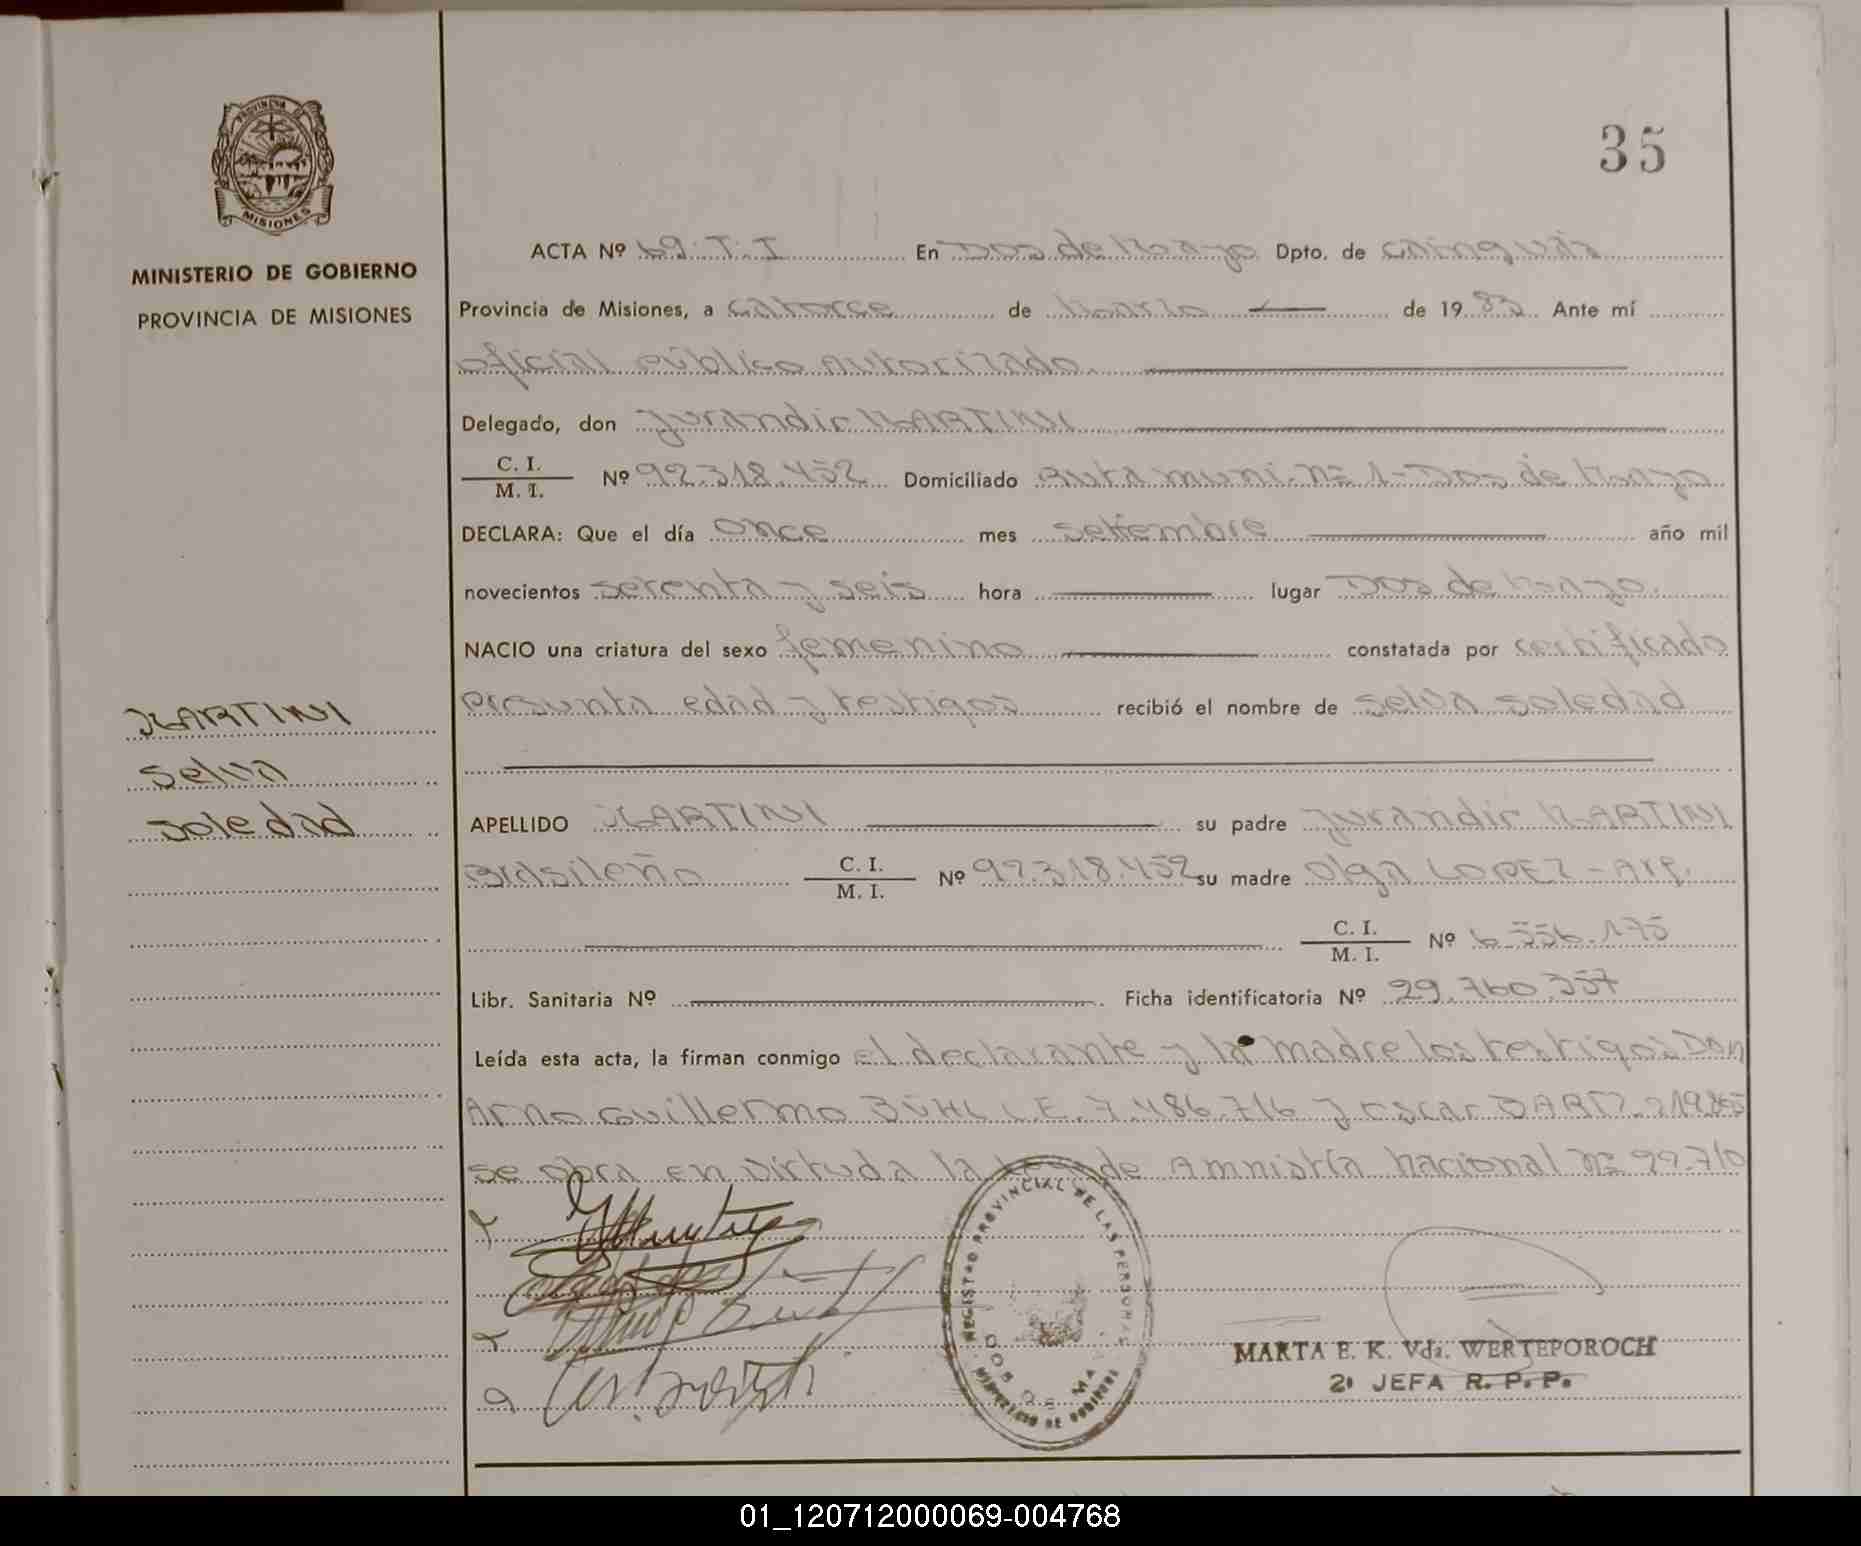 35
PROVINCIA
MISIONES
MINISTERIO DE GOBIERNO
PROVINCIA DE MISIONES
ACTA Nº 69. T. I En Dos de Mayo Dpto. de Cainguás
Provincia de Misiones, a catorce de Marzo de 1983. Ante mí
oficial público autorizado.
Delegado, don Jurandir MARTINI
C. I. / M. I. Nº 92.318.452 Domiciliado Ruta muni. Nº 1 - Dos de Mayo
DECLARA: Que el día once mes settiembre año mil
novecientos setenta y seis hora lugar Dos de Mayo.
NACIO una criatura del sexo femenino constatada por certificado
presunta edad y testigos recibió el nombre de Selva Soledad
MARTINI
Selva
Soledad
APELLIDO MARTINI su padre Jurandir MARTINI
Brasileño C. I. / M. I. Nº 92.318.452 su madre Olga LOPEZ - Arg.
C. I. / M. I. Nº 6.556.175
Libr. Sanitaria Nº Ficha identificatoria Nº 29.760.357
Leída esta acta, la firman conmigo el declarante y la madre los testigos Don
Arno Guillermo BÜHL L.E. 7.486.716 y Oscar
se obra en virtud a la Ley de Amnistía Nacional Nº 22.710
REGISTRO PROVINCIAL DE LAS PERSONAS
DOS DE MAYO
MINISTERIO DE GOBIERNO
MARTA E. K. Vda. WERTEPOROCH
2ª JEFA R. P. P.
01_120712000069-004768